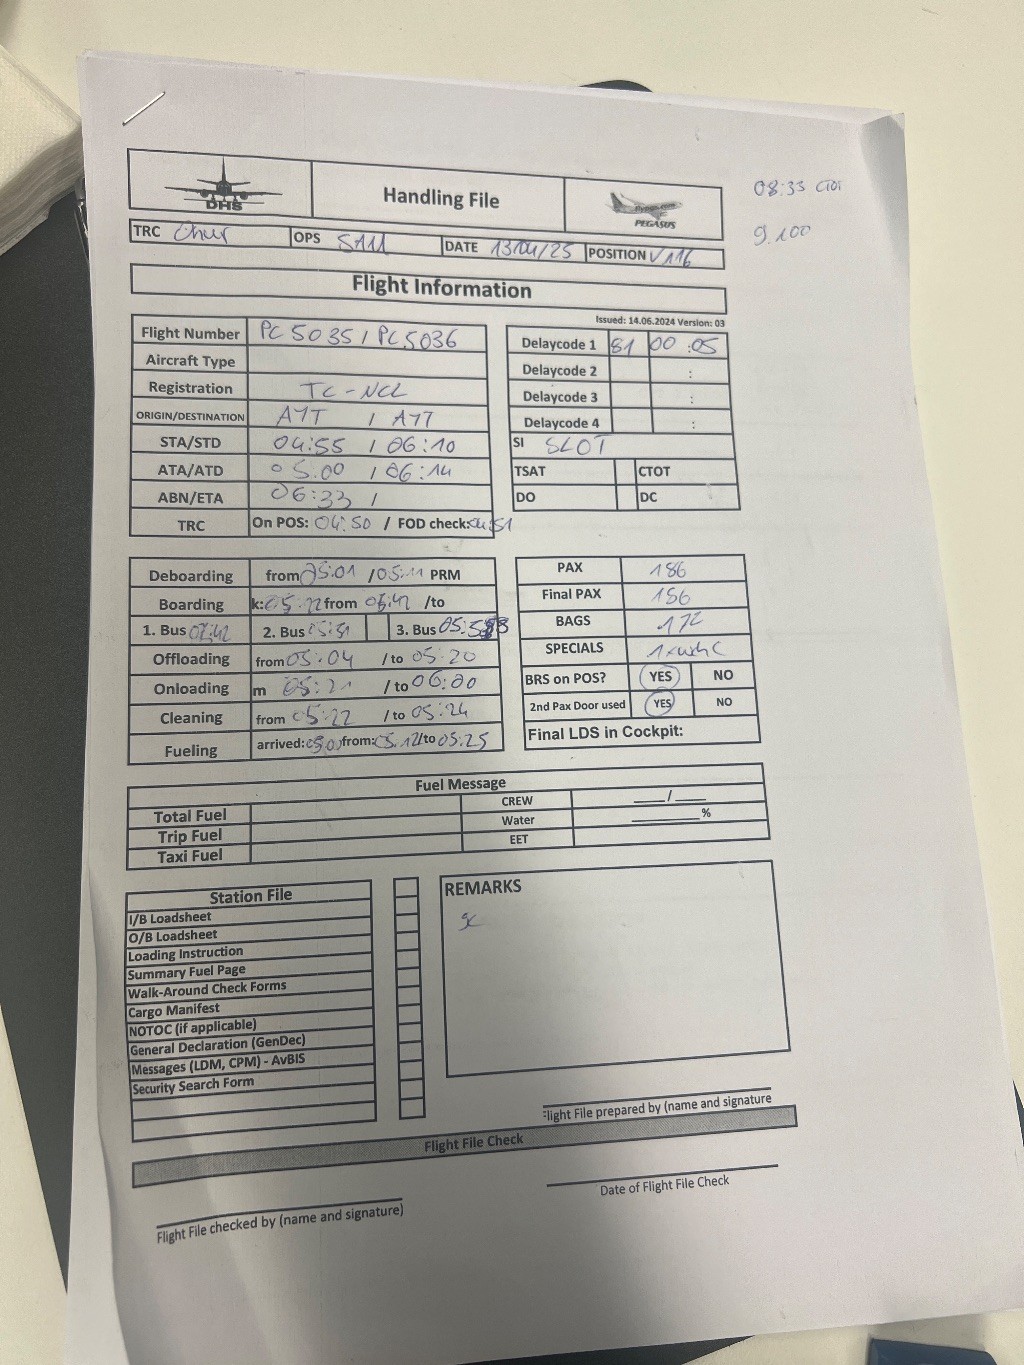 08:33 CTOT
DHS
Handling File
flypgs.com
PEGASUS
9.100
TRC OPS DATE 13/04/25 POSITION V116
Flight Information
Issued: 14.06.2024 Version: 03
Flight Number PC 5035 / PC 5036
Delaycode 1 81 00:05
Aircraft Type
Delaycode 2 :
Registration TC-NCL
Delaycode 3 :
ORIGIN/DESTINATION AYT / AYT
Delaycode 4 :
STA/STD 04:55 / 06:10
SI SLOT
ATA/ATD 05:00 / 06:14
TSAT CTOT
ABN/ETA 06:33 /
DO DC
TRC On POS: 04:50 / FOD check: 04:51
Deboarding from 05:01 /05:11 PRM
PAX 186
Boarding k: from 05:42 /to
Final PAX 156
1. Bus 2. Bus 05:51 3. Bus
BAGS 172
Offloading from 05:04 /to 05:20
SPECIALS
Onloading m 05:21 /to 06:00
BRS on POS? YES NO
Cleaning from 05:22 /to 05:24
2nd Pax Door used YES NO
Fueling arrived: from: 05:12 /to 05:25
Final LDS in Cockpit:
Fuel Message
Total Fuel CREW __/__
Trip Fuel Water ______%
Taxi Fuel EET
Station File
REMARKS
I/B Loadsheet
O/B Loadsheet
Loading Instruction
Summary Fuel Page
Walk-Around Check Forms
Cargo Manifest
NOTOC (if applicable)
General Declaration (GenDec)
Messages (LDM, CPM) - AvBIS
Security Search Form
Flight File prepared by (name and signature
Flight File Check
Flight File checked by (name and signature)
Date of Flight File Check